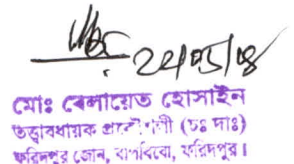 মোঃ বেলায়েত হোসাইন
তত্ত্বাবধায়ক প্রকৌশলী (চঃ দাঃ)
ফরিদপুর জোন, বাপবিবো, ফরিদপুর।